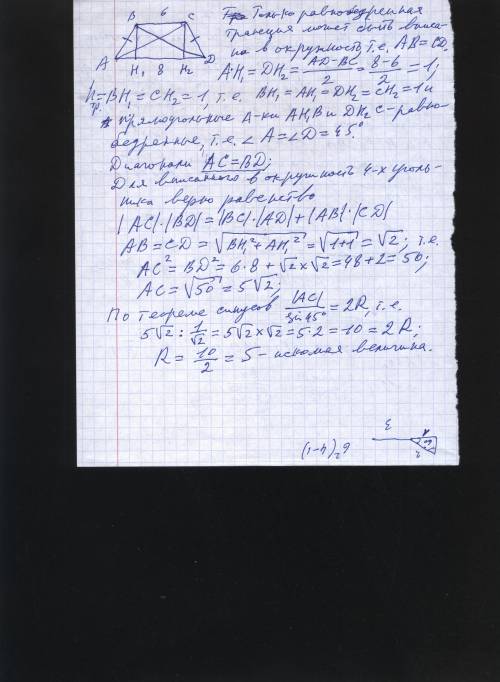 B 6 C
A H₁ 8 H₂ D
Только равнобедренная
трапеция может быть вписа-
на в окружность, т.е. AB = CD.
AH₁ = DH₂ = (AD-BC)/2 = (8-6)/2 = 1;
h тр. = BH₁ = CH₂ = 1, т.е. BH₁ = AH₁ = DH₂ = CH₂ = 1 и
прямоугольные Δ-ки AH₁B и DH₂C - равно-
бедренные, т.е. ∠A = ∠D = 45°
Диагонали |AC = BD|;
Для вписанного в окружность 4-х уголь-
ника верно равенство
|AC|·|BD| = |BC|·|AD| + |AB|·|CD|
AB = CD = √(BH₁² + AH₁²) = √(1+1) = √2; т.е.
AC² = BD² = 6·8 + √2 x √2 = 48 + 2 = 50;
AC = √50 = 5√2;
По теореме синусов |AC|/sin45° = 2R, т.е.
5√2 : 1/√2 = 5√2 x √2 = 5·2 = 10 = 2R;
R = 10/2 = 5 - искомая величина.
3